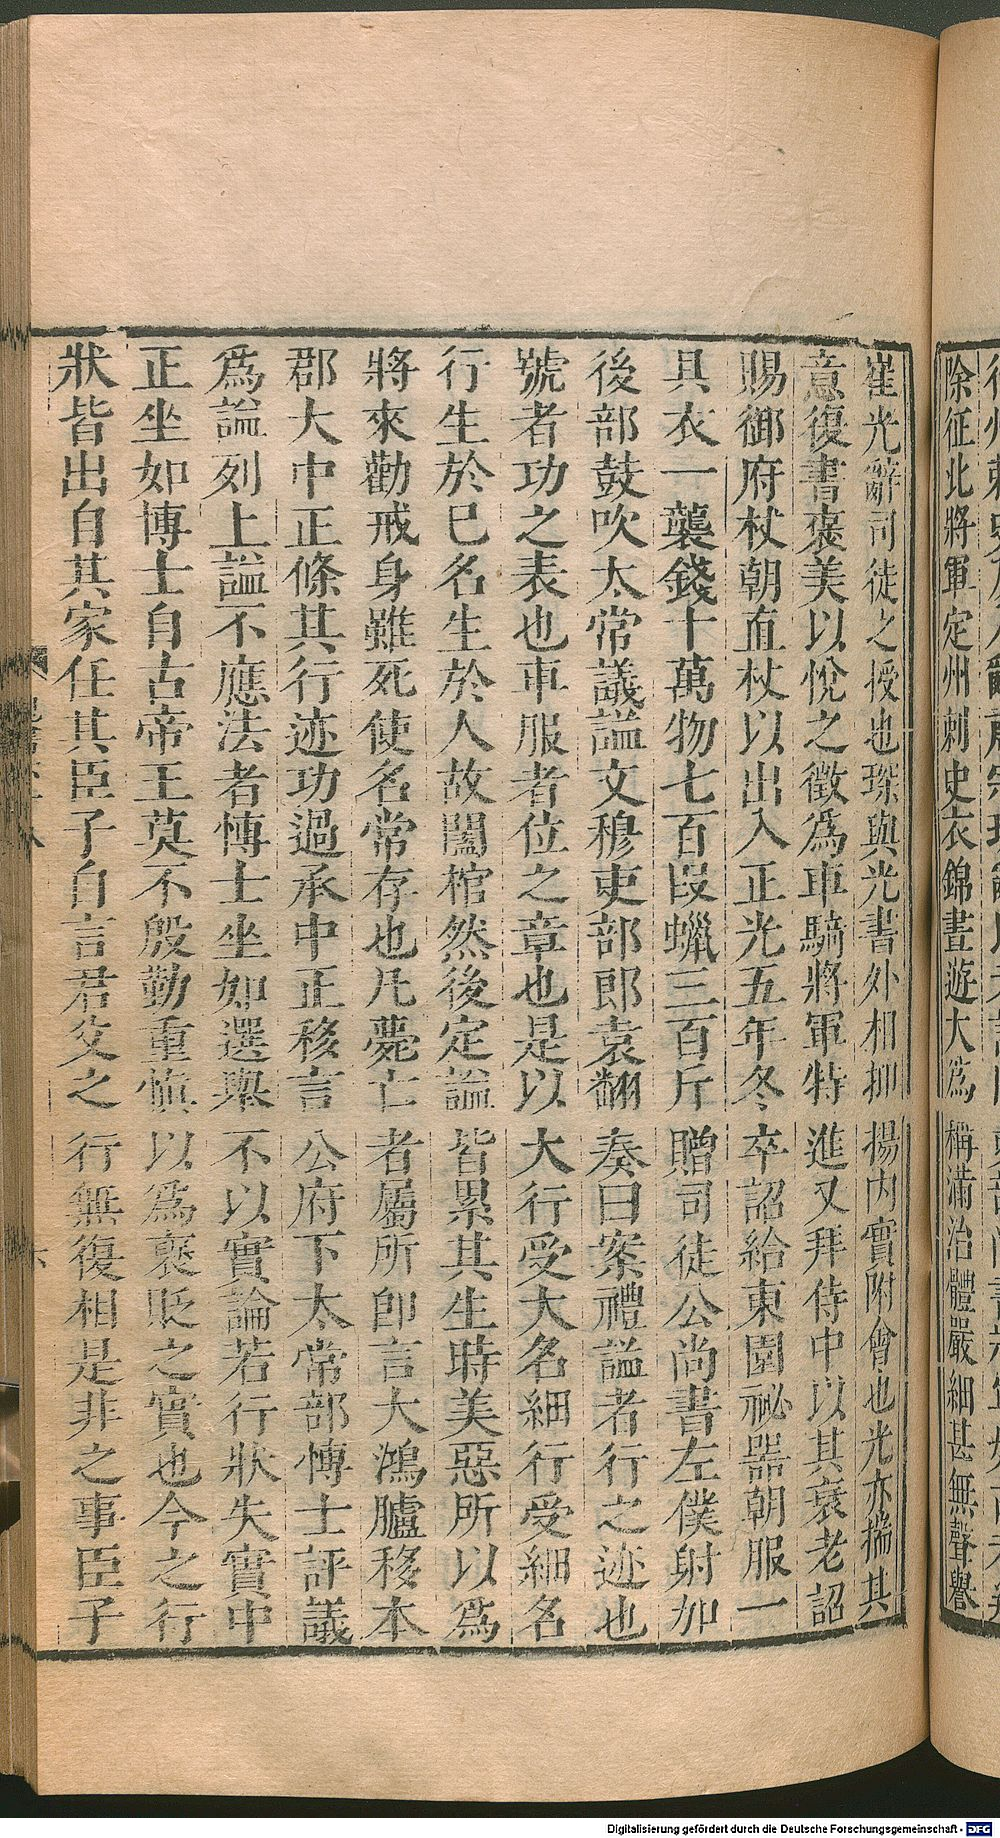 除征北將軍定州刺史衣錦晝遊大爲稱滿治體嚴細甚無聲譽
崔光辭司徒之授也琛與光書外相抑揚內實附會也光亦揣其
意復書褒美以悅之徵爲車騎將軍特進又拜侍中以其衰老詔
賜御府杖朝直杖以出入正光五年冬卒詔給東園祕器朝服一
具衣一襲錢十萬物七百段蠟三百斤贈司徒公尚書左僕射加
後部鼓吹太常議謚文穆吏部郎袁翻奏曰案禮謚者行之迹也
號者功之表也車服者位之章也是以大行受大名細行受細名
行生於己名生於人故闔棺然後定謚皆累其生時美惡所以爲
將來勸戒身雖死使名常存也凡薨亡者屬所卽言大鴻臚移本
郡大中正條其行迹功過承中正移言公府下太常部博士評議
爲謚列上謚不應法者博士坐如選舉不以實論若行狀失實中
正坐如博士自古帝王莫不殷勤重慎以爲褒貶之實也今之行
狀皆出自其家任其臣子自言君父之行無復相是非之事臣子
Digitalisierung gefördert durch die Deutsche Forschungsgemeinschaft - DFG